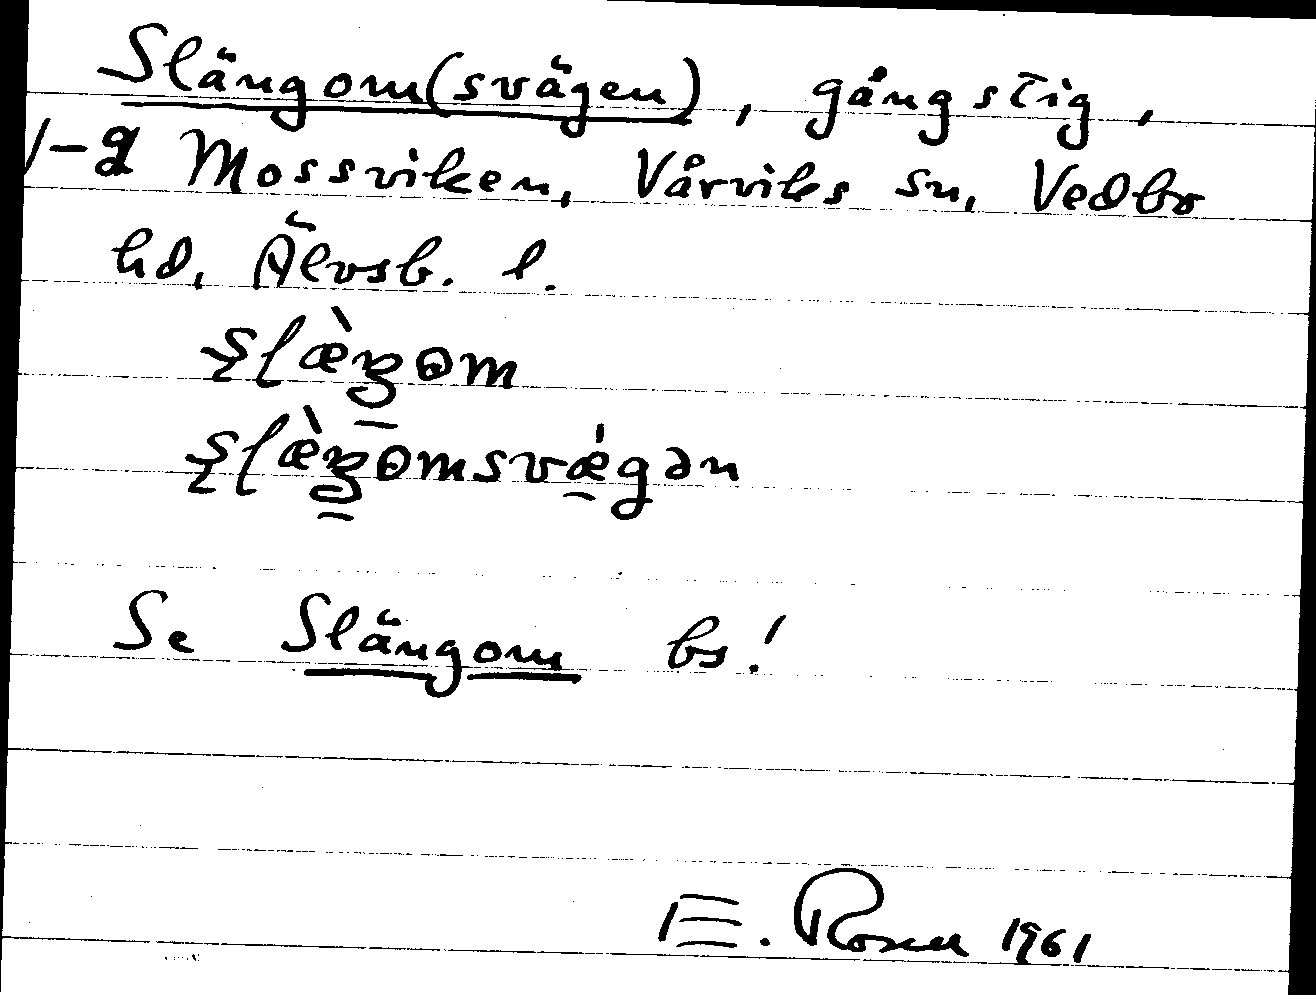 Slängom(svägen), gångstig,
1-g Mossviken, Vårviks sn, Vedbo
hd, Älvsb. l.
ʂlæ̀ŋom
ʂlæ̀ŋomsvǽgən
Se Slängom bs!
E. Rosell 1961